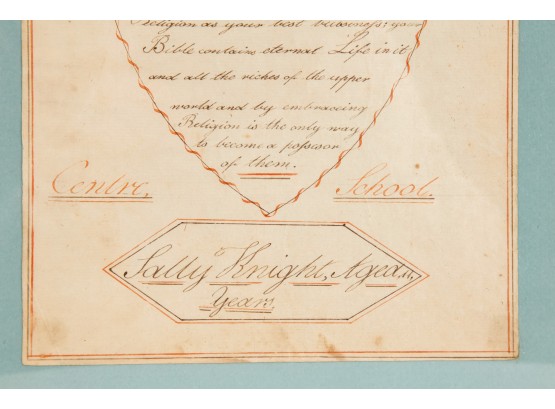 Religion as your best bussoness: your
Bible contains eternal Life in it
and all the riches of the upper
world and by embraceing
Religion is the only way
to become a possessor
of them.
Centre, School.
Sally Knight, Aged 11,
Years,